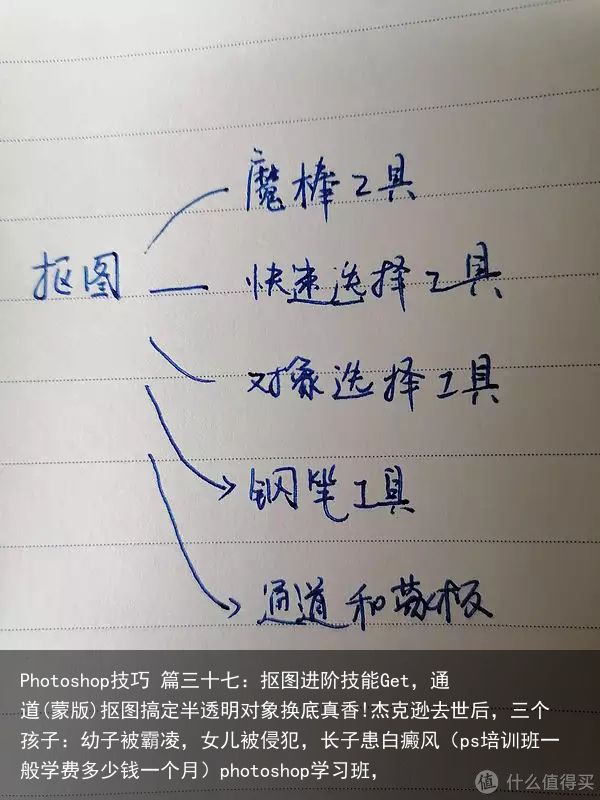 魔棒工具
抠图
快速选择工具
对象选择工具
钢笔工具
通道和蒙板
Photoshop技巧 篇三十七：抠图进阶技能Get，通
道(蒙版)抠图搞定半透明对象换底真香!杰克逊去世后，三个
孩子：幼子被霸凌，女儿被侵犯，长子患白癜风（ps培训班一
般学费多少钱一个月）photoshop学习班，
值 什么值得买